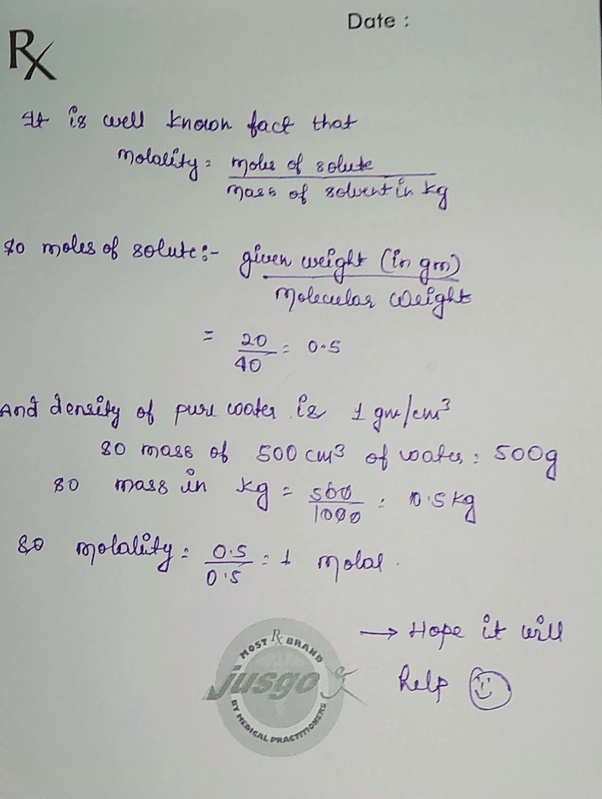 Date :
Rx
It is well known fact that
molality = moles of solute
mass of solvent in kg
so moles of solute :- given weight (in gm)
molecular weight
= 20
40 = 0.5
And density of pure water is 1 gm/cm³
so mass of 500 cm³ of water = 500g
so mass in kg = 500
1000 = 0.5 kg
so molality = 0.5
0.5 = 1 molal.
→ Hope it will
help ☺
MOST Rx BRAND
jusgo
BY MEDICAL PRACTITIONERS